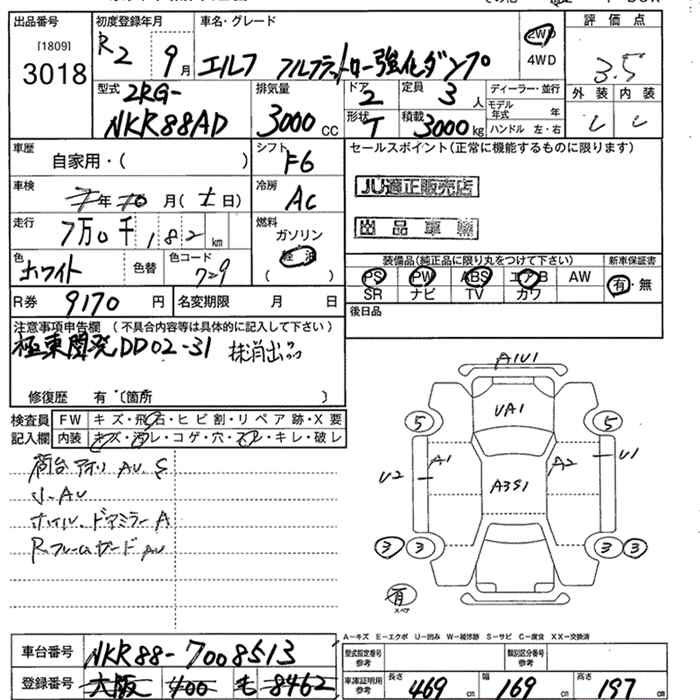 出品番号 初度登録年月 車名・グレード 評価点
[1809]
3018 R2 9月 エルフ フルフラットロー強化ダンプ 2WD 3.5
4WD
型式 2RG- 排気量 ドア 2 定員 3人 ディーラー・並行 外装 内装
モデル年式 年
NKR88AD 3000cc 形状 T 積載 3000kg ハンドル 左・右
車歴 シフト F6 セールスポイント(正常に機能するものに限ります)
自家用・( )
車検 年 月( 日) 冷房 AC JU適正販売店
走行 7万0千182km 燃料 出品車輌
ガソリン
軽油
( )
色 ホワイト 色替 色コード 729 装備品(純正品に限り丸をつけて下さい) 新車保証書
PS PW ABS エアB AW 有・無
R券 9170円 名変期限 月 日 SR ナビ TV カワ
注意事項申告欄 (不具合内容等は具体的に記入して下さい) 後日品
極東開発DD02-31 抹消出品
修復歴 有〔箇所 〕
検査員 FW キズ・飛石・ヒビ割・リペア跡・X要
記入欄 内装 キズ・汚レ・コゲ・穴・スレ・キレ・破レ
荷台アオリ AU,S
ホイル、ドアミラーA
R.フレームガード AU
A1U1
UA1
5 5
U2 A1 A2 U1
A3S1
3 3 3 3
有
スペア
A-キズ E-エクボ U-凹み W-補修跡 S-サビ C-腐食 XX-交換済
車台番号 NKR88-7008513 型式指定番号 参考 類別区分番号 参考
登録番号 大阪 400 モ 8462 車庫証明用 参考 長さ 469cm 幅 169cm 高さ 197cm